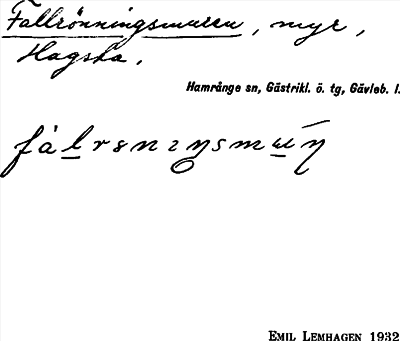 Fallrönningsmuren, myr,
Hagsta.
Hamrånge sn, Gästrikl. ö. tg, Gävleb. l.
EMIL LEMHAGEN 1932